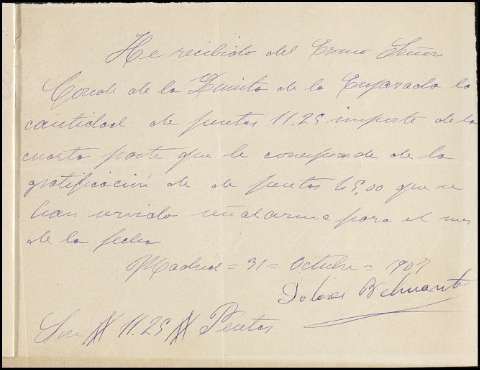 He recibido del Excmo Señor
Conde de la Quinta de la Enjarada la
cantidad de pesetas 11.25 importe de la
cuarta parte que le corresponde de la
gratificación de de pesetas 45,00 que se
han servido señalarme para el mes
de la fecha
Madrid = 31 = Octubre = 1909
Dolores
Son # 11.25 # Pesetas